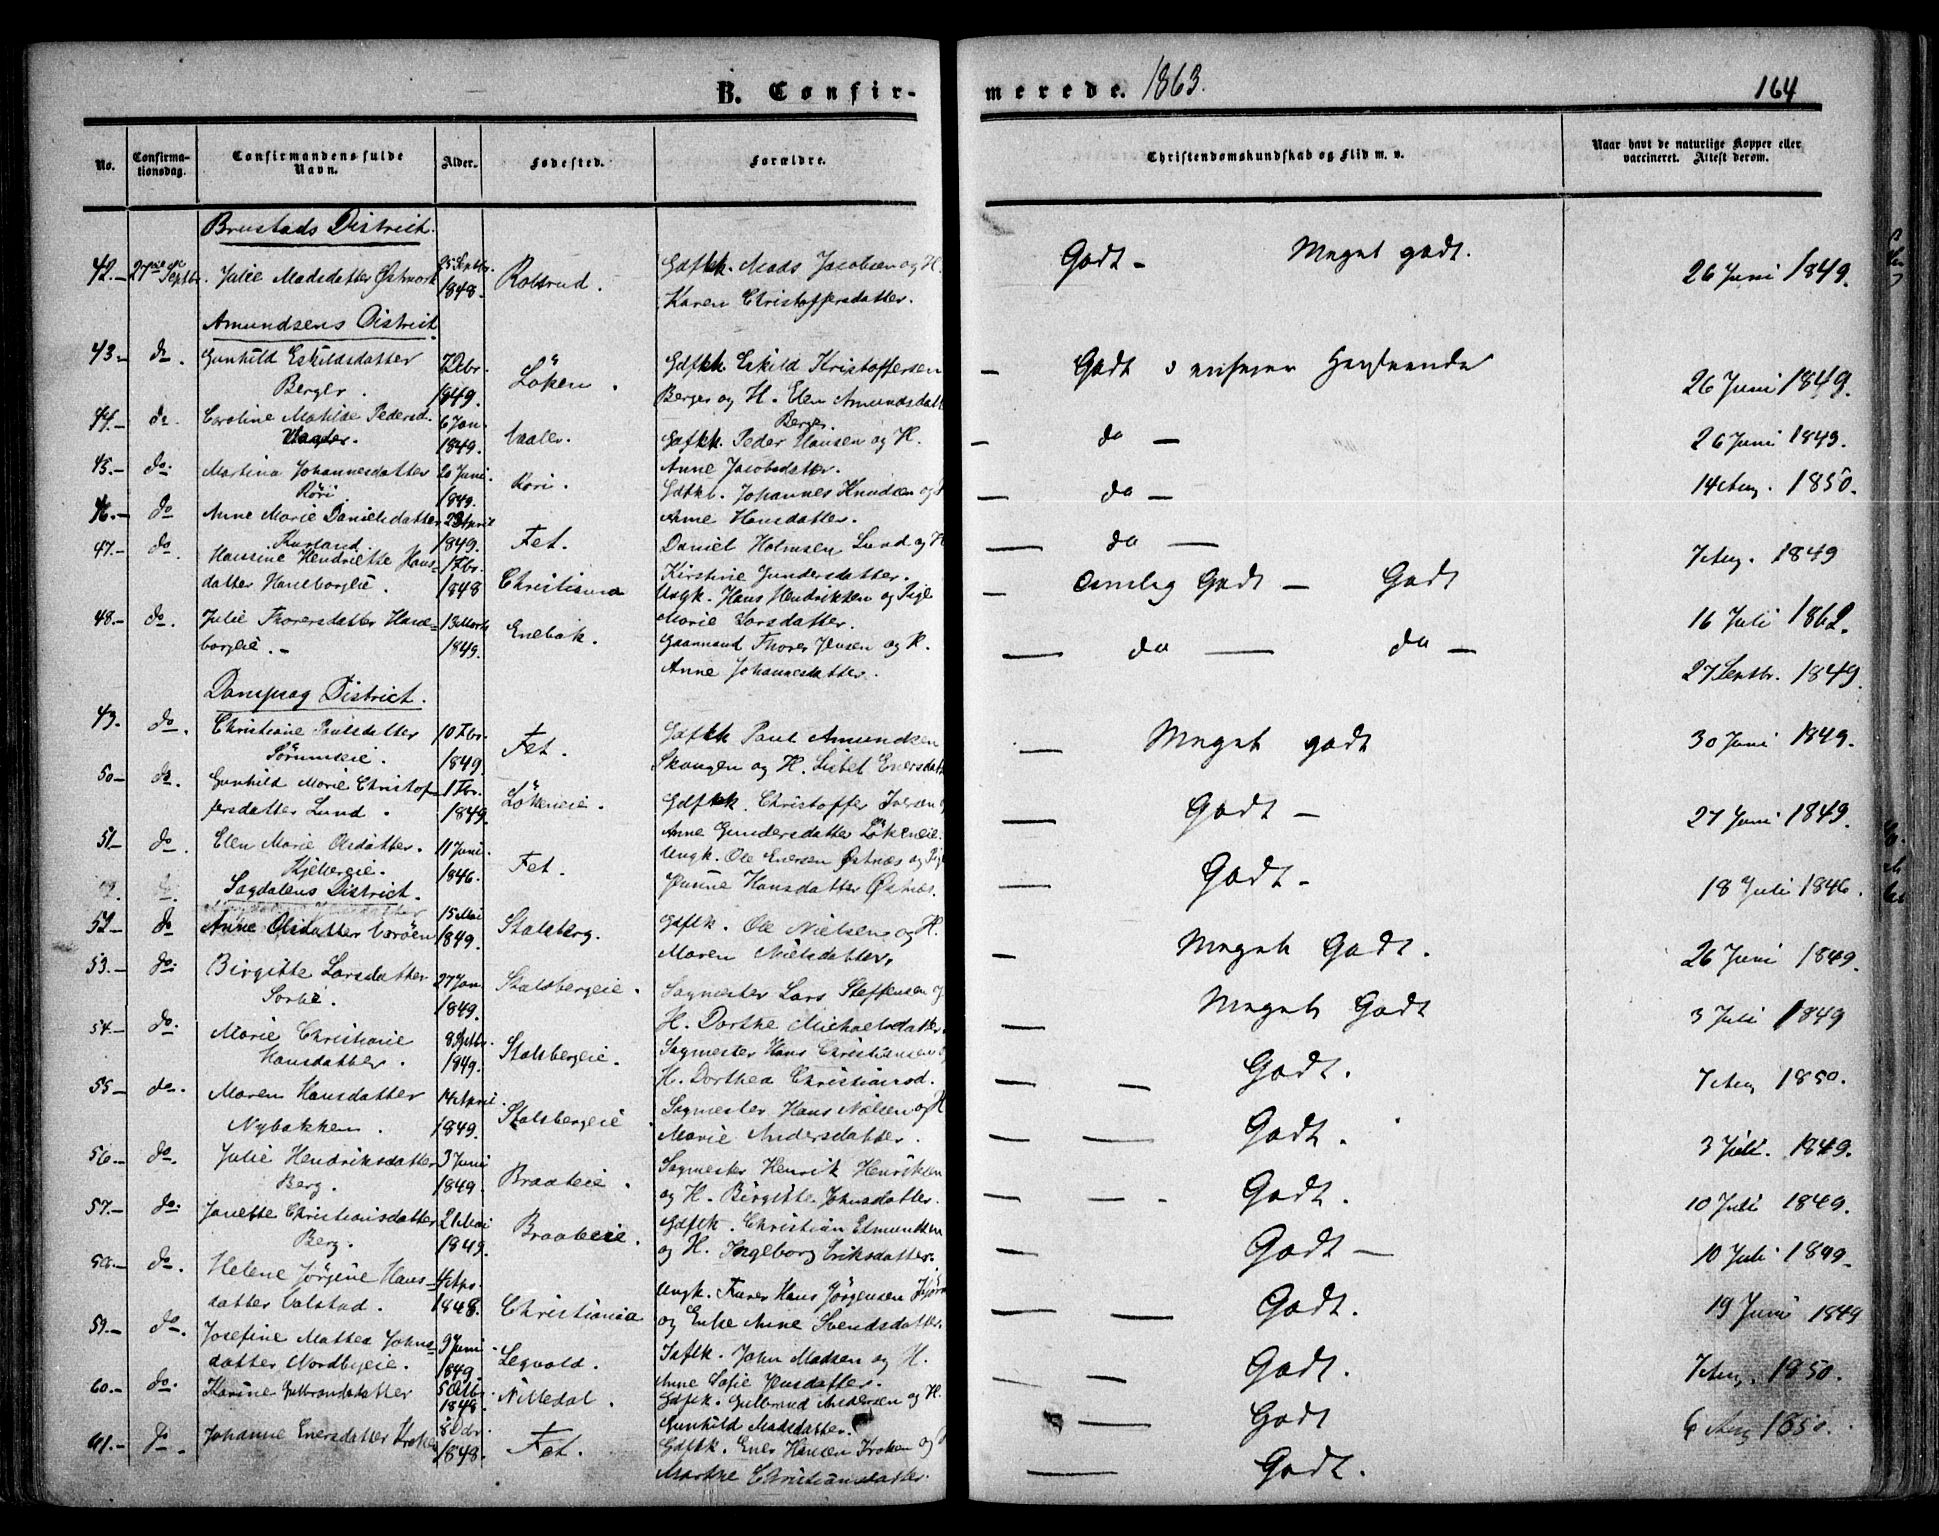 B. Confir-
merede. 1863.
164
No.
Confirma-
tionsdag.
Confirmandens fulde
Navn.
Alder.
Fødested.
Forældre.
Christendomskundskab og Flid m. v.
Naar havt de naturlige Kopper eller
vaccineret. Attest derom.
Brustads District.
42.- 27 Septbr. Julie Madsdatter Østmork 25 Septbr. 1848. Rolsrud. Gdfkk. Mads Jacobsen og H.
Karen Christoffersdatter.
Godt - Meget godt. 26 Juni 1849.
Amundsens District
43- do. Gunhild Eskildsdatter
Berger 7 Debr. 1849. Løken. Gdfkk. Eskild Kristoffersen
Berger og H. Elen Amundsdatt
Berger.
Godt 26 Juni 1849.
44.- do. Caroline Matilde Pedersd. 6 Jan. 1849. Vaaler. Gdfkk. Peder Hansen og H.
Anne Jacobsdatter.
do - 26 Juni 1849.
45.- do. Martina Johannesdatter
Röri 20 Juni. 1849. Röri. Gdfkk. Johannes Knudsen og
Anne Hansdatter.
do - 14 Aug. 1850.
46.- do Anne Marie Danielsdatter
Kurland. 23 April 1849. Fet. Daniel Holmsen Lund og H
Kirstine Gundersdatter.
do - 7 Aug. 1849
47.- do Hansine Hendriette Hans-
datter Haneborgeie. 1 Fbr. 1848 Christiania Ungk. Hans Hendriksen og Pige
Marie Larsdatter.
Temlig Godt - Godt 16 Juli 1862.
48.- do. Julie Thorersdatter Hane-
borgeie.- 13 Marts 1849. Enebak. Gaarmand Thorer Jensen og H.
Anne Johannesdatter.
do - do - 27 Septbr. 1849.
Dampsag District.
49. do. Christiane Paulsdatter
Sørumeie. 10 Fbr. 1849. Fet. Gdfkk Paul Amundsen
Skaugen og H. Lisbet Enersdatt
Meget godt 30 Juni 1849.
50- do. Gunhild Marie Christof-
fersdatter Lund. 1 Fbr. 1849. Løkeneie. Gdfkk. Christoffer Iversen
Anne Gundersdatter Løkeneie.
Godt - 27 Juni 1849.
51- do. Elen Marie Olsdatter.
Kjellereie. 11 Juni. 1846. Fet. Ungk. Ole Enersen Østnæs og Pige
Hanne Hansdatter Østnæs.
Godt - 18 Juli 1846.
Sagdalens District.
52- do Anne Olsdatter 15 Mai 1849. Stalsberg. Gdfkk. Ole Nielsen og H.
Maren Nielsdatter,
Meget Godt. 26 Juni 1849.
53.- do. Birgitte Larsdatter
Sorbie. 27 Jan. 1849. Stalsbergeie. Sagmester Lars Steffensen og
H. Dorthe Michaelsdatter.
Meget Godt 3 Juli 1849
54.- do. Marie Christiane
Hansdatter. 8 Septbr. 1849. Stalsbergeie. Sagmester Hans Christiansen og
H. Dorthea Christiansd.
Godt. 7 Aug 1850.
55- do. Maren Hansdatter
Nybakken. 14 April 1849. Stalsbergeie Sagmester Hans Nilsen og H
Marie Andersdatter.
Godt. 3 Juli. 1849.
56- do. Julie Hendriksdatter
Berg. 3 Juni 1849. Braateie. Sagmester Henrik Henriksen
og H. Birgitte Johnsdatter.
Godt. 10 Juli 1849.
57.- do. Janette Christiansdatter
Berg. 21 Mai 1849. Braateie. Gdfkk. Christian Elmundsen
og H. Ingeborg Eriksdatter.
Godt - 10 Juli 1849.
58- do. Helene Jørgine Hans-
datter Valstad. 1848. Christiania Ungk. Hans Jørgensen
og Enke Anne Svendsdatter.
Godt. 19 Juni 1849
59.- do. Josefine Mathea Johns-
datter Nordbyeie. 9 Juni 1849. Leqvold. John Madsen og H.
Anne Sofie Jensdatter.
Godt. 7 Aug. 1850.
60.- do. Karine Gulbrandsdatter 5 Octbr. 1848. Nittedal. Gdfkk. Gulbrand Andersen og H.
Gunhild Madsdatter.
Godt 6 Aug 1850.
61.- do. Johanne Enersdatter Kroken 8 Dcbr. 1848. Fet. Gdfkk. Ener Hansen Kroken og
Marthe Christiansdatter.
Godt.